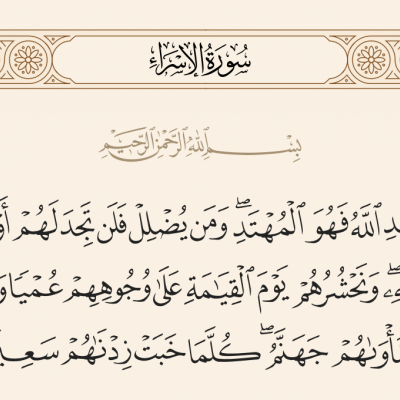 سُورَةُ الإِسْرَاءِ
بِسْمِ اللَّهِ الرَّحْمَٰنِ الرَّحِيمِ
اللَّهُ فَهُوَ الْمُهْتَدِ ۖ وَمَن يُضْلِلْ فَلَن تَجِدَ لَهُمْ
وَنَحْشُرُهُمْ يَوْمَ الْقِيَامَةِ عَلَىٰ وُجُوهِهِمْ عُمْيًا
جَهَنَّمُ ۖ كُلَّمَا خَبَتْ زِدْنَاهُمْ